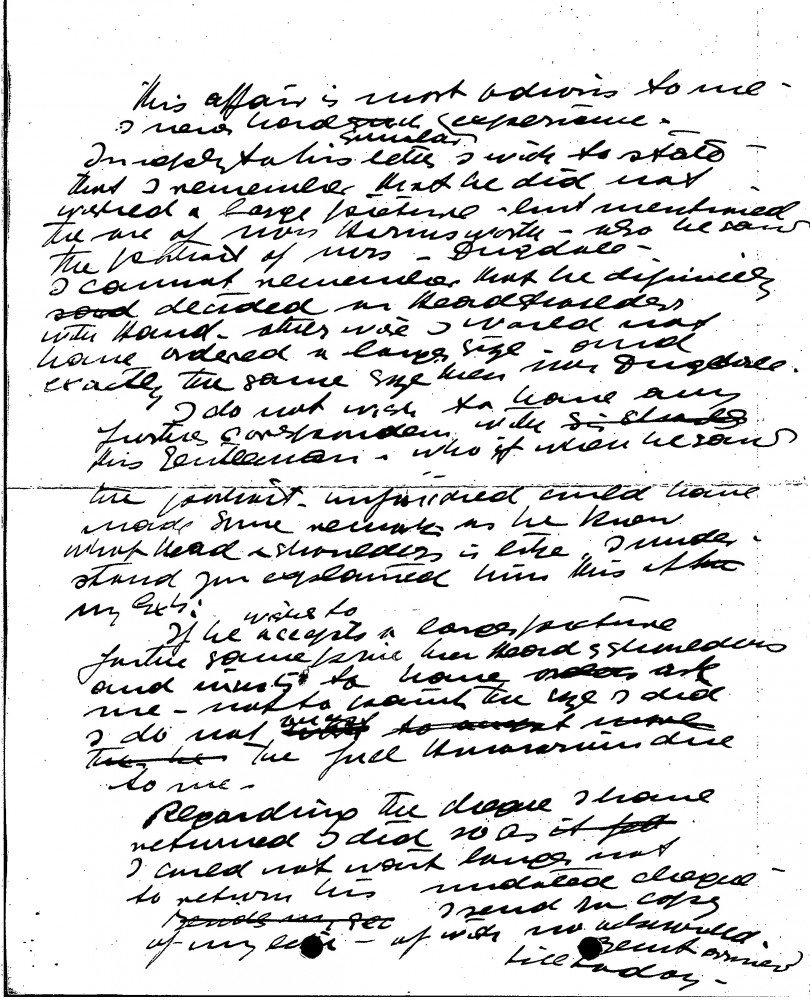 This affair is most odious to me -
I never had such experience -
similar
In reply to his letter I wish to state -
that I remember that he did not
wished a large picture - but mentioned
the one of Mrs Harmsworth - also he saw
the portrait of Mrs - Dugdale -
I cannot remember that he definitely
said decided on Head & shoulders
with Hand - otherwise I would not
have ordered a larger size - and
exactly the same size then Mrs Dugdale.
I do not wish to have any
further correspondence with
this Gentleman - who if when he saw
the portrait - unfinished could have
made some remarks as he knew
what Head & shoulders is like, I under-
stand you explained him this at the
my Exh:
wishes to
If he accepts a large picture
for the same price then Head & shoulders
and insists to have ask
me - not to paint the size I did
I do not accept to accept more
the full Honorarium due
to me -
Regarding the cheque I have
returned I did so as it felt
I could not wait longer not
to return his undated cheque -
Sends my sec I send you copy
of my letter - of wich no acknowledg-
ment arrived
till today -